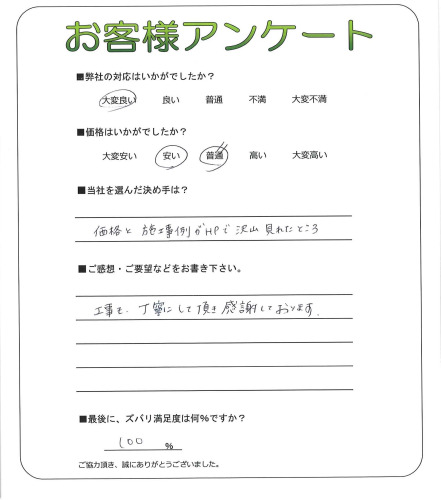 お客様アンケート
■弊社の対応はいかがでしたか？
大変良い 良い 普通 不満 大変不満
■価格はいかがでしたか？
大変安い 安い 普通 高い 大変高い
■当社を選んだ決め手は？
価格と施工事例がHPで沢山見れたところ
■ご感想・ご要望などをお書き下さい。
工事も、丁寧にして頂き感謝しております。
■最後に、ズバリ満足度は何％ですか？
100 ％
ご協力頂き、誠にありがとうございました。